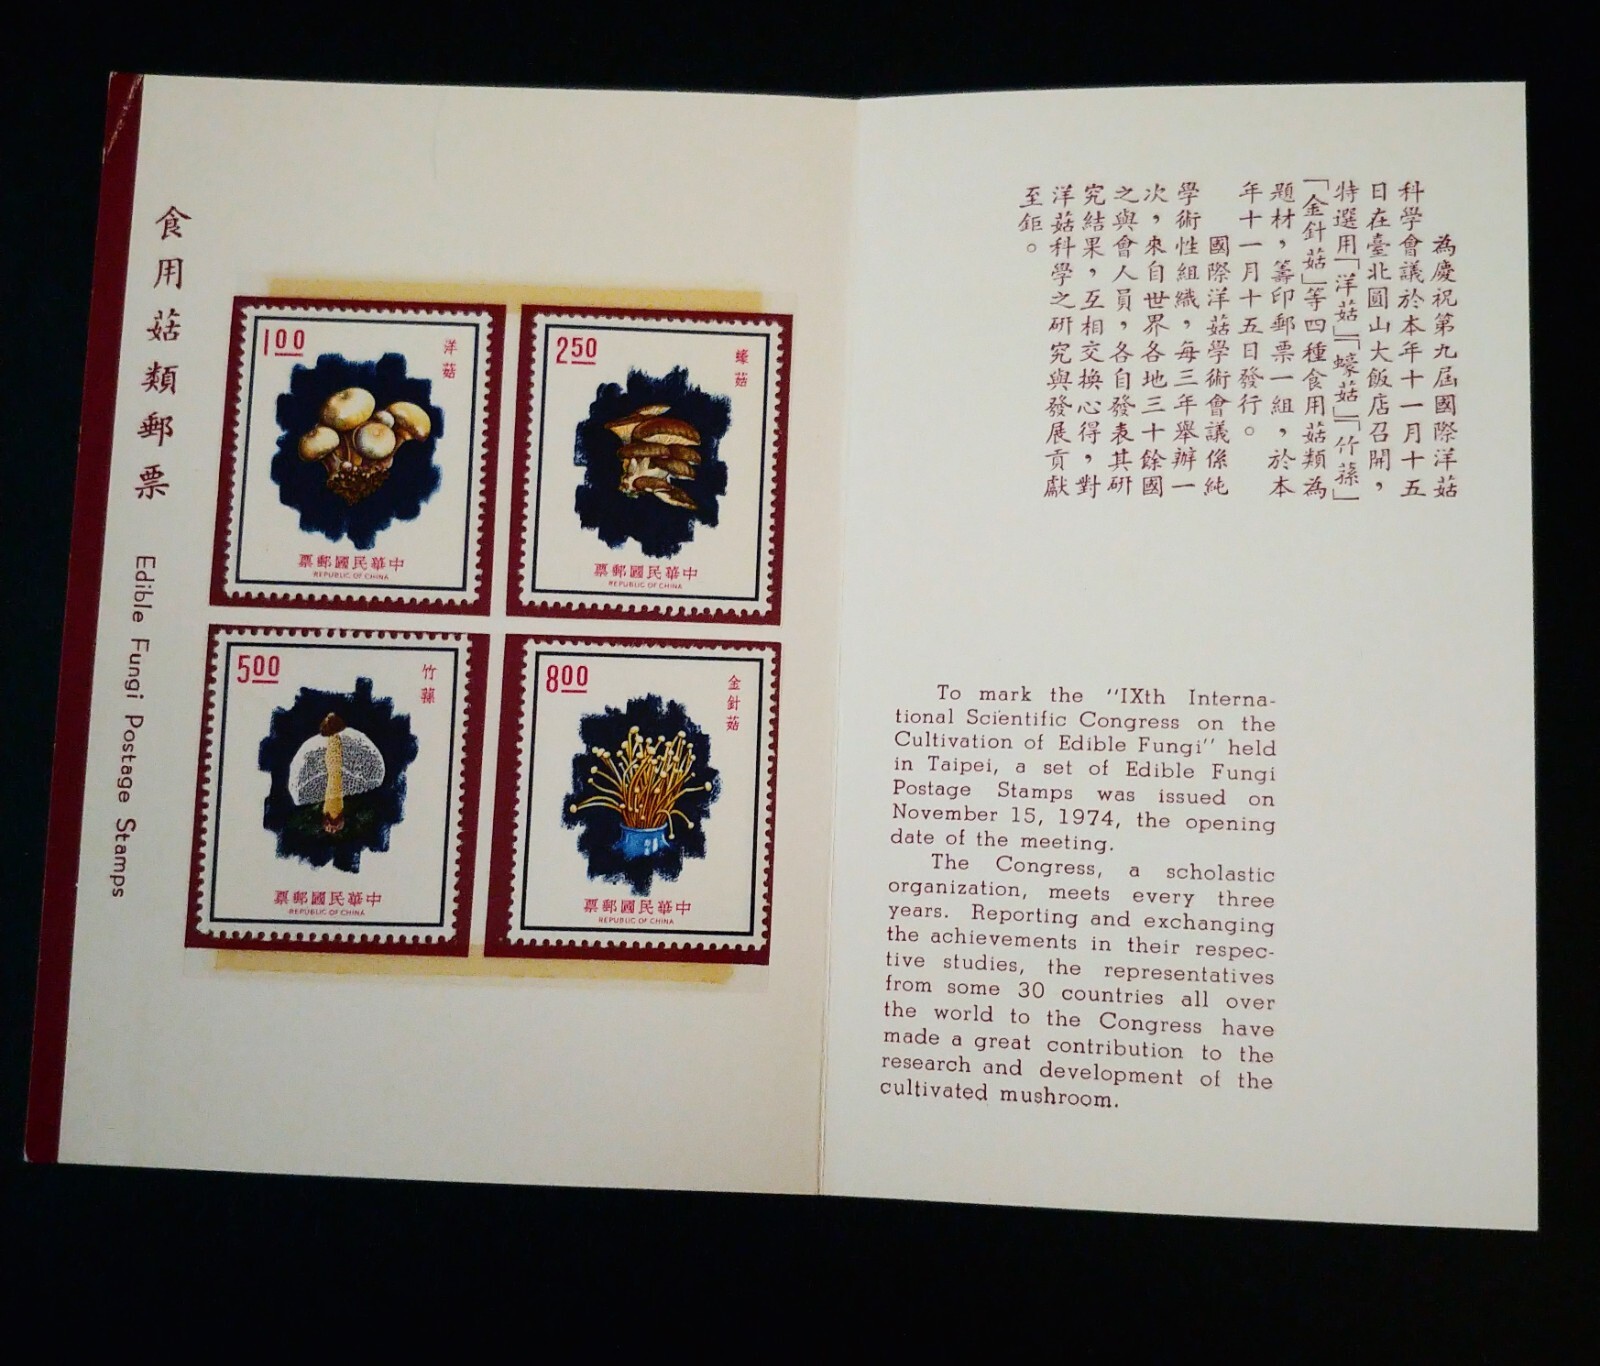 食用菇類郵票 Edible Fungi Postage Stamps
1.00
洋菇
中華民國郵票
REPUBLIC OF CHINA
2.50
蠔菇
中華民國郵票
REPUBLIC OF CHINA
5.00
竹蓀
中華民國郵票
REPUBLIC OF CHINA
8.00
金針菇
中華民國郵票
REPUBLIC OF CHINA
為慶祝第九屆國際洋菇
科學會議於本年十一月十五
日在臺北圓山大飯店召開，
特選用「洋菇」「蠔菇」「竹蓀」
「金針菇」等四種食用菇類為
題材，籌印郵票一組，於本
年十一月十五日發行。
國際洋菇學術會議係純
學術性組織，每三年舉辦一
次，來自世界各地三十餘國
之與會人員，各自發表其研
究結果，互相交換心得，對
洋菇科學之研究與發展貢獻
至鉅。
To mark the "IXth Interna-
tional Scientific Congress on the
Cultivation of Edible Fungi" held
in Taipei, a set of Edible Fungi
Postage Stamps was issued on
November 15, 1974, the opening
date of the meeting.
The Congress, a scholastic
organization, meets every three
years. Reporting and exchanging
the achievements in their respec-
tive studies, the representatives
from some 30 countries all over
the world to the Congress have
made a great contribution to the
research and development of the
cultivated mushroom.